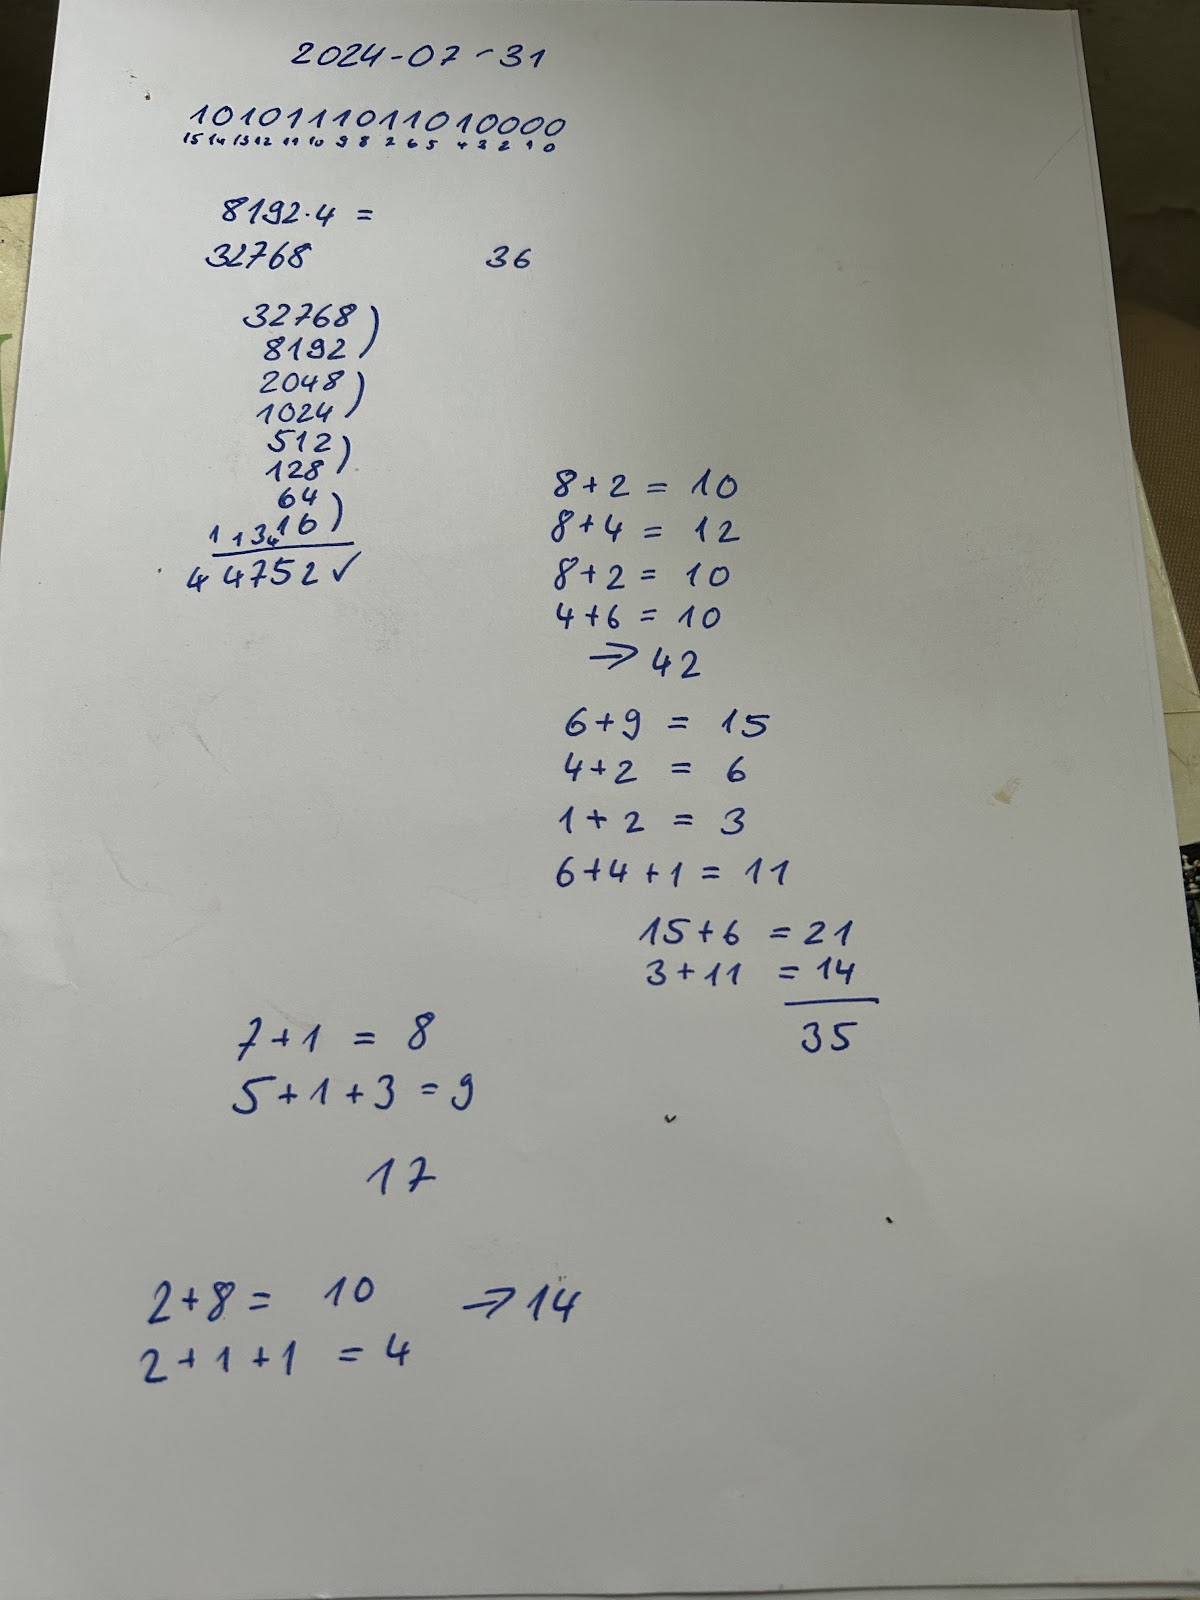 2024-07-31
1010111011010000
15 14 13 12 11 10 9 8 7 6 5 4 3 2 1 0
8192·4 =
32768 36
32768)
8192)
2048)
1024)
512)
128)
64
16)
1 1 3 4
44752✓
8+2 = 10
8+4 = 12
8+2 = 10
4+6 = 10
⇒ 42
6+9 = 15
4+2 = 6
1+2 = 3
6+4+1 = 11
15+6 = 21
3+11 = 14
35
7+1 = 8
5+1+3 = 9
17
2+8 = 10 ⇒ 14
2+1+1 = 4